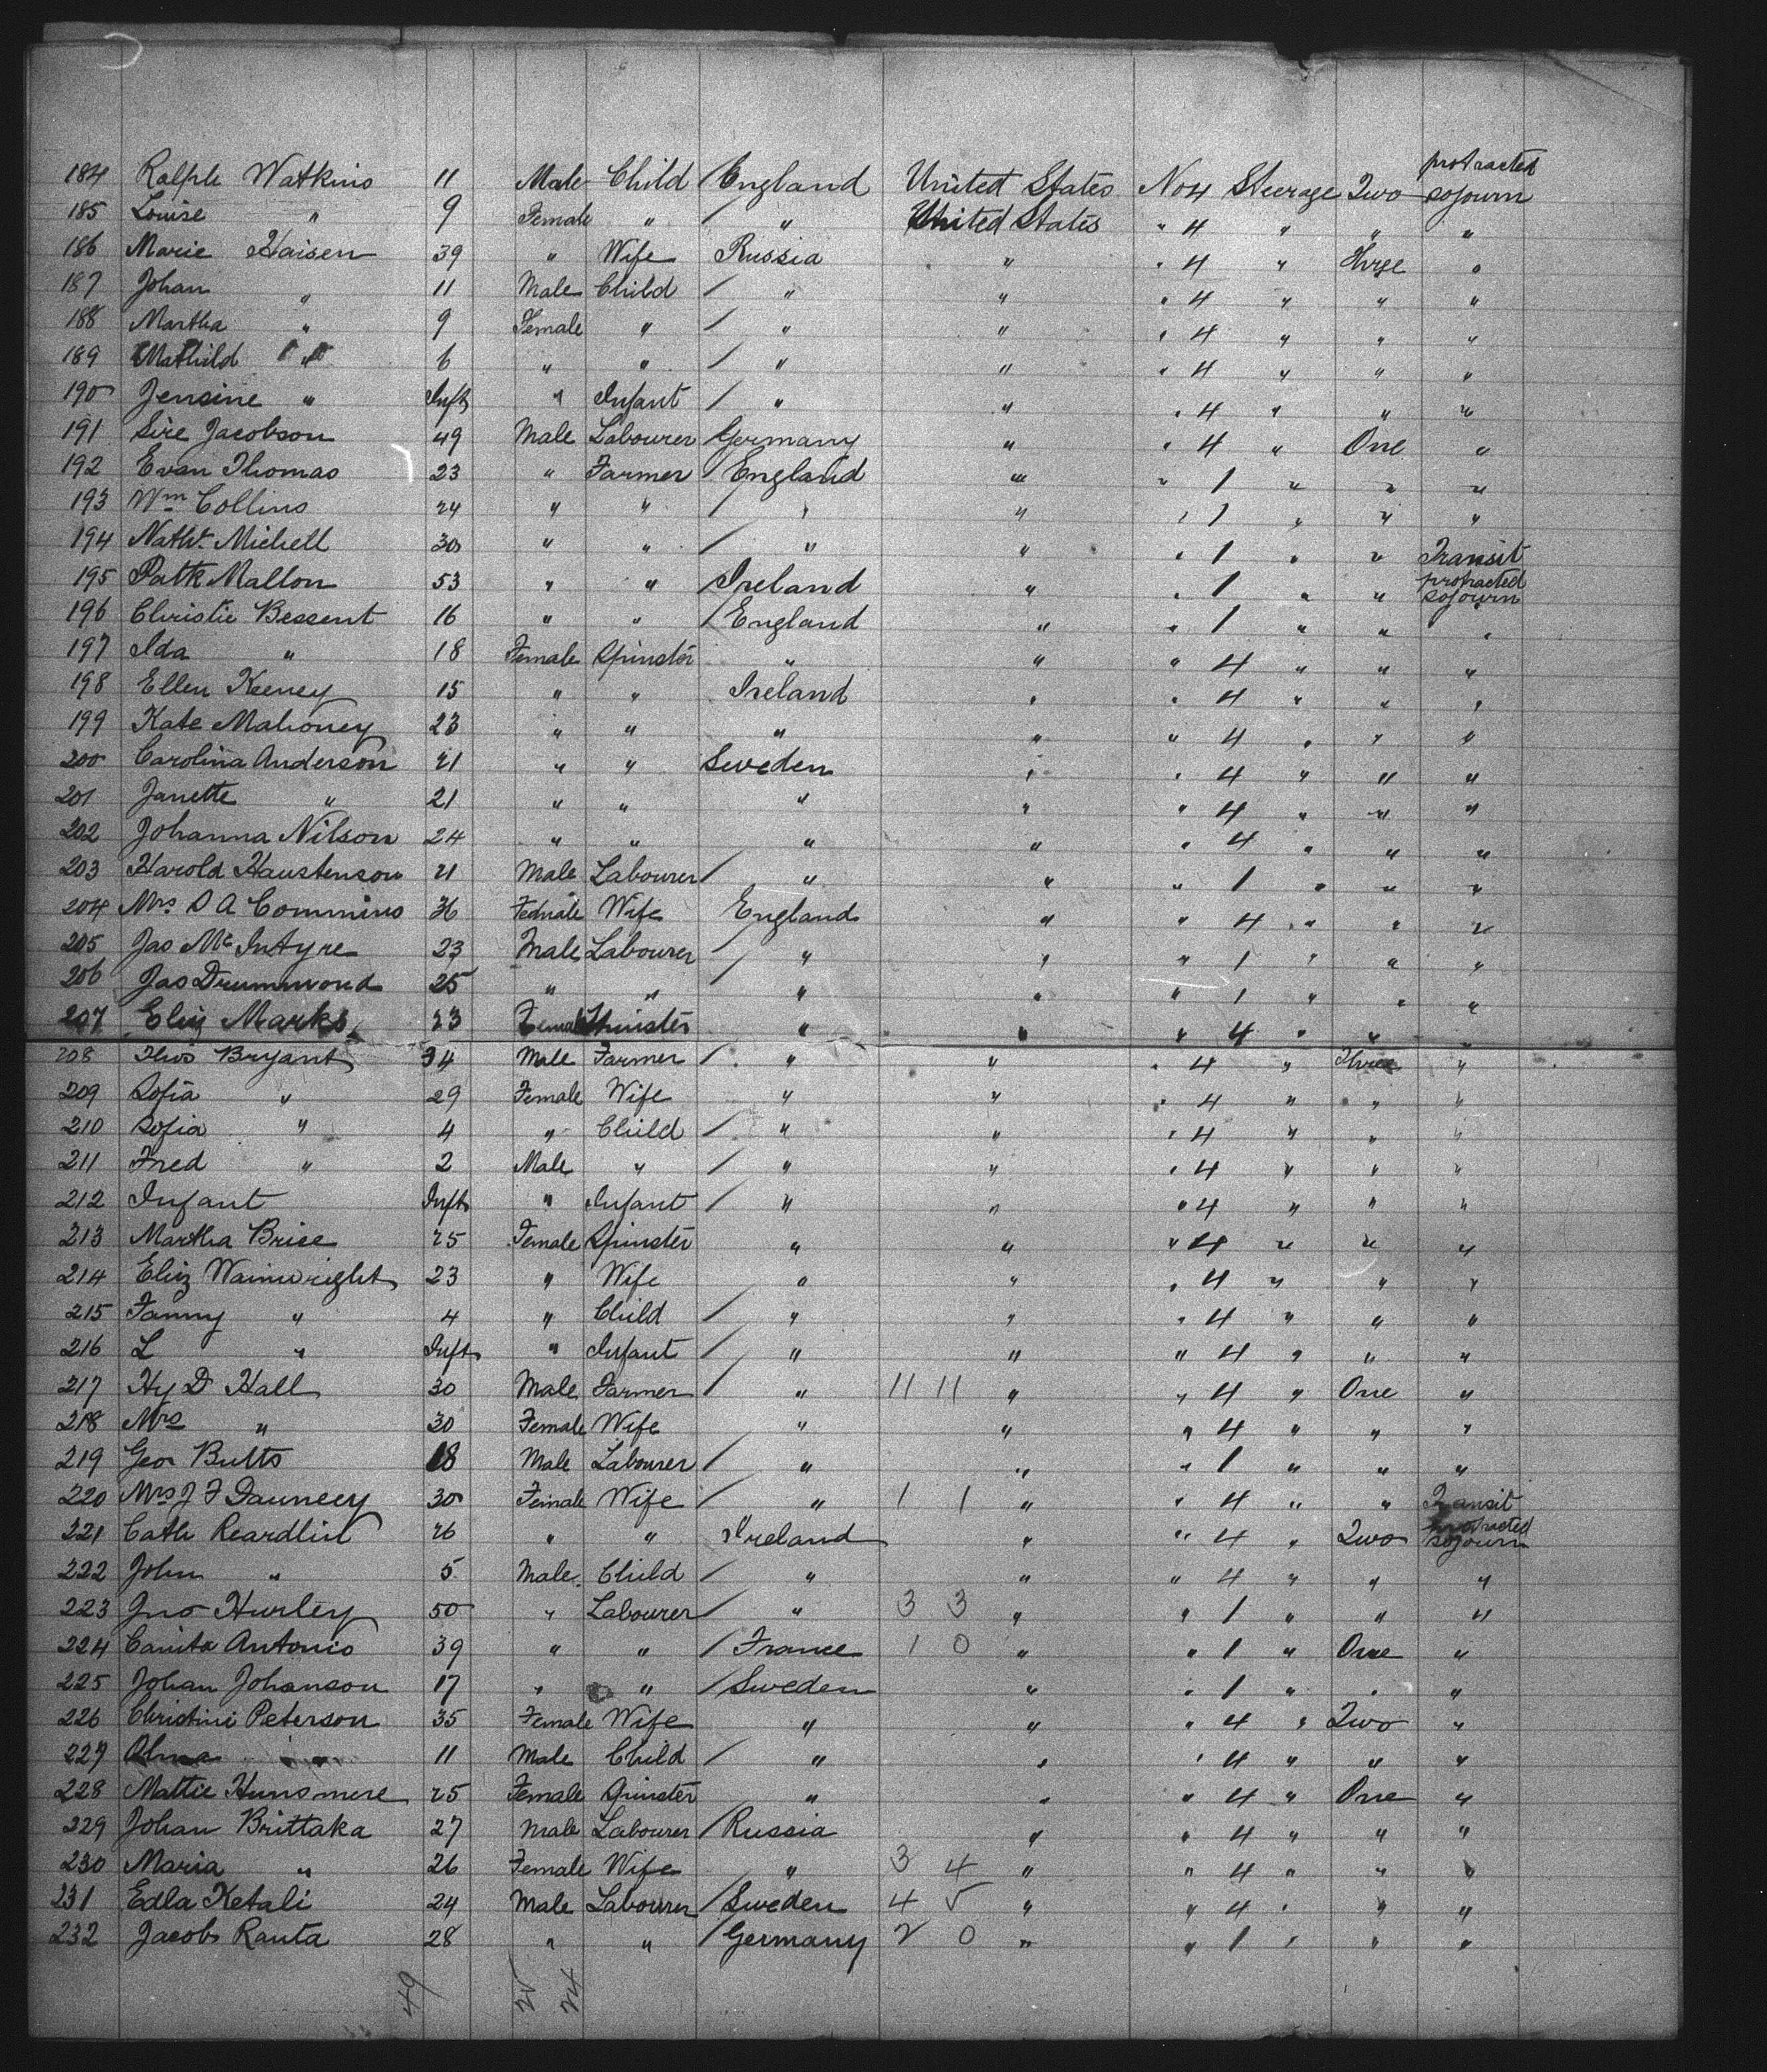 184 Ralph Watkins 11 Male Child / England United States No 4 Steerage Two protracted sojourn
185 Louise " 9 Female " / " United States " 4 " " "
186 Marie Haisen 39 " Wife Russia " " 4 " Three "
187 Johan " 11 Male Child / " " " 4 " " "
188 Martha " 9 Female " / " " " 4 " " "
189 Mathild " 6 " " / " " " 4 " " "
190 Jensine " Inft " Infant / " " " 4 " " "
191 Sire Jacobson 49 Male Labourer / Germany " " 4 " One "
192 Evan Thomas 23 " Farmer / England " " 1 " " "
193 Wm Collins 24 " " / " " " 1 " " "
194 Nathl. Michell 30 " " / " " " 1 " " Transit
195 Patk Mallon 53 " " / Ireland " " 1 " " protracted sojourn
196 Christie Bessent 16 " " / England " " 1 " " "
197 Ida " 18 Female Spinster " " " 4 " " "
198 Ellen Keeney 15 " " Ireland " " 4 " " "
199 Kate Mahoney 23 " " " " " 4 " " "
200 Carolina Anderson 21 " " Sweden " " 4 " " "
201 Janette " 21 " " " " " 4 " " "
202 Johanna Nilson 24 " " " " " 4 " " "
203 Harold Haustenson 21 Male Labourer / " " " 1 " " "
204 Mrs S A Commins 36 Female Wife England " " 4 " " "
205 Jas McIntyre 23 Male Labourer / " " " 1 " " "
206 Jas Drummond 25 " " / " " " 1 " " "
207 Eliz Marks 23 Female Spinster " " " 4 " " "
208 Thos Bryant 34 Male Farmer / " " " 4 " Three "
209 Sofia " 29 Female Wife " " " 4 " " "
210 Sofia " 4 " Child / " " " 4 " " "
211 Fred " 2 Male " / " " " 4 " " "
212 Infant Inft " Infant / " " " 4 " " "
213 Martha Brise 25 Female Spinster " " " 4 " " "
214 Eliz Wainwright 23 " Wife " " " 4 " " "
215 Fanny " 4 " Child / " " " 4 " " "
216 L " Inft " Infant / " " " 4 " " "
217 Hy D Hall 30 Male Farmer / " 11 11 " " 4 " One "
218 Mrs " 30 Female Wife " " " 4 " " "
219 Geo Butts 18 Male Labourer / " " " 1 " " "
220 Mrs J F Dauncey 30 Female Wife / " 1 1 " " 4 " " Transit
221 Cath Reardlin 26 " " Ireland " " 4 " Two protracted sojourn
222 John " 5 Male Child / " " " 4 " " "
223 Jno Hurley 50 " Labourer / " 3 3 " " 1 " " "
224 Canita Antonio 39 " " / France 1 0 " " 1 " One "
225 Johan Johanson 17 " " / Sweden " " 1 " " "
226 Christini Peterson 35 Female Wife " " " 4 " Two "
227 Alma " 11 Male Child / " " " 4 " " "
228 Mattie Hunsmere 25 Female Spinster " " " 4 " One "
229 Johan Brittaka 27 Male Labourer / Russia " " 4 " " "
230 Maria " 26 Female Wife " 3 4 " " 4 " " "
231 Edla Ketali 24 Male Labourer / Sweden 4 5 " " 4 " " "
232 Jacob Ranta 28 " " / Germany 2 0 " " 1 " " "
49 24